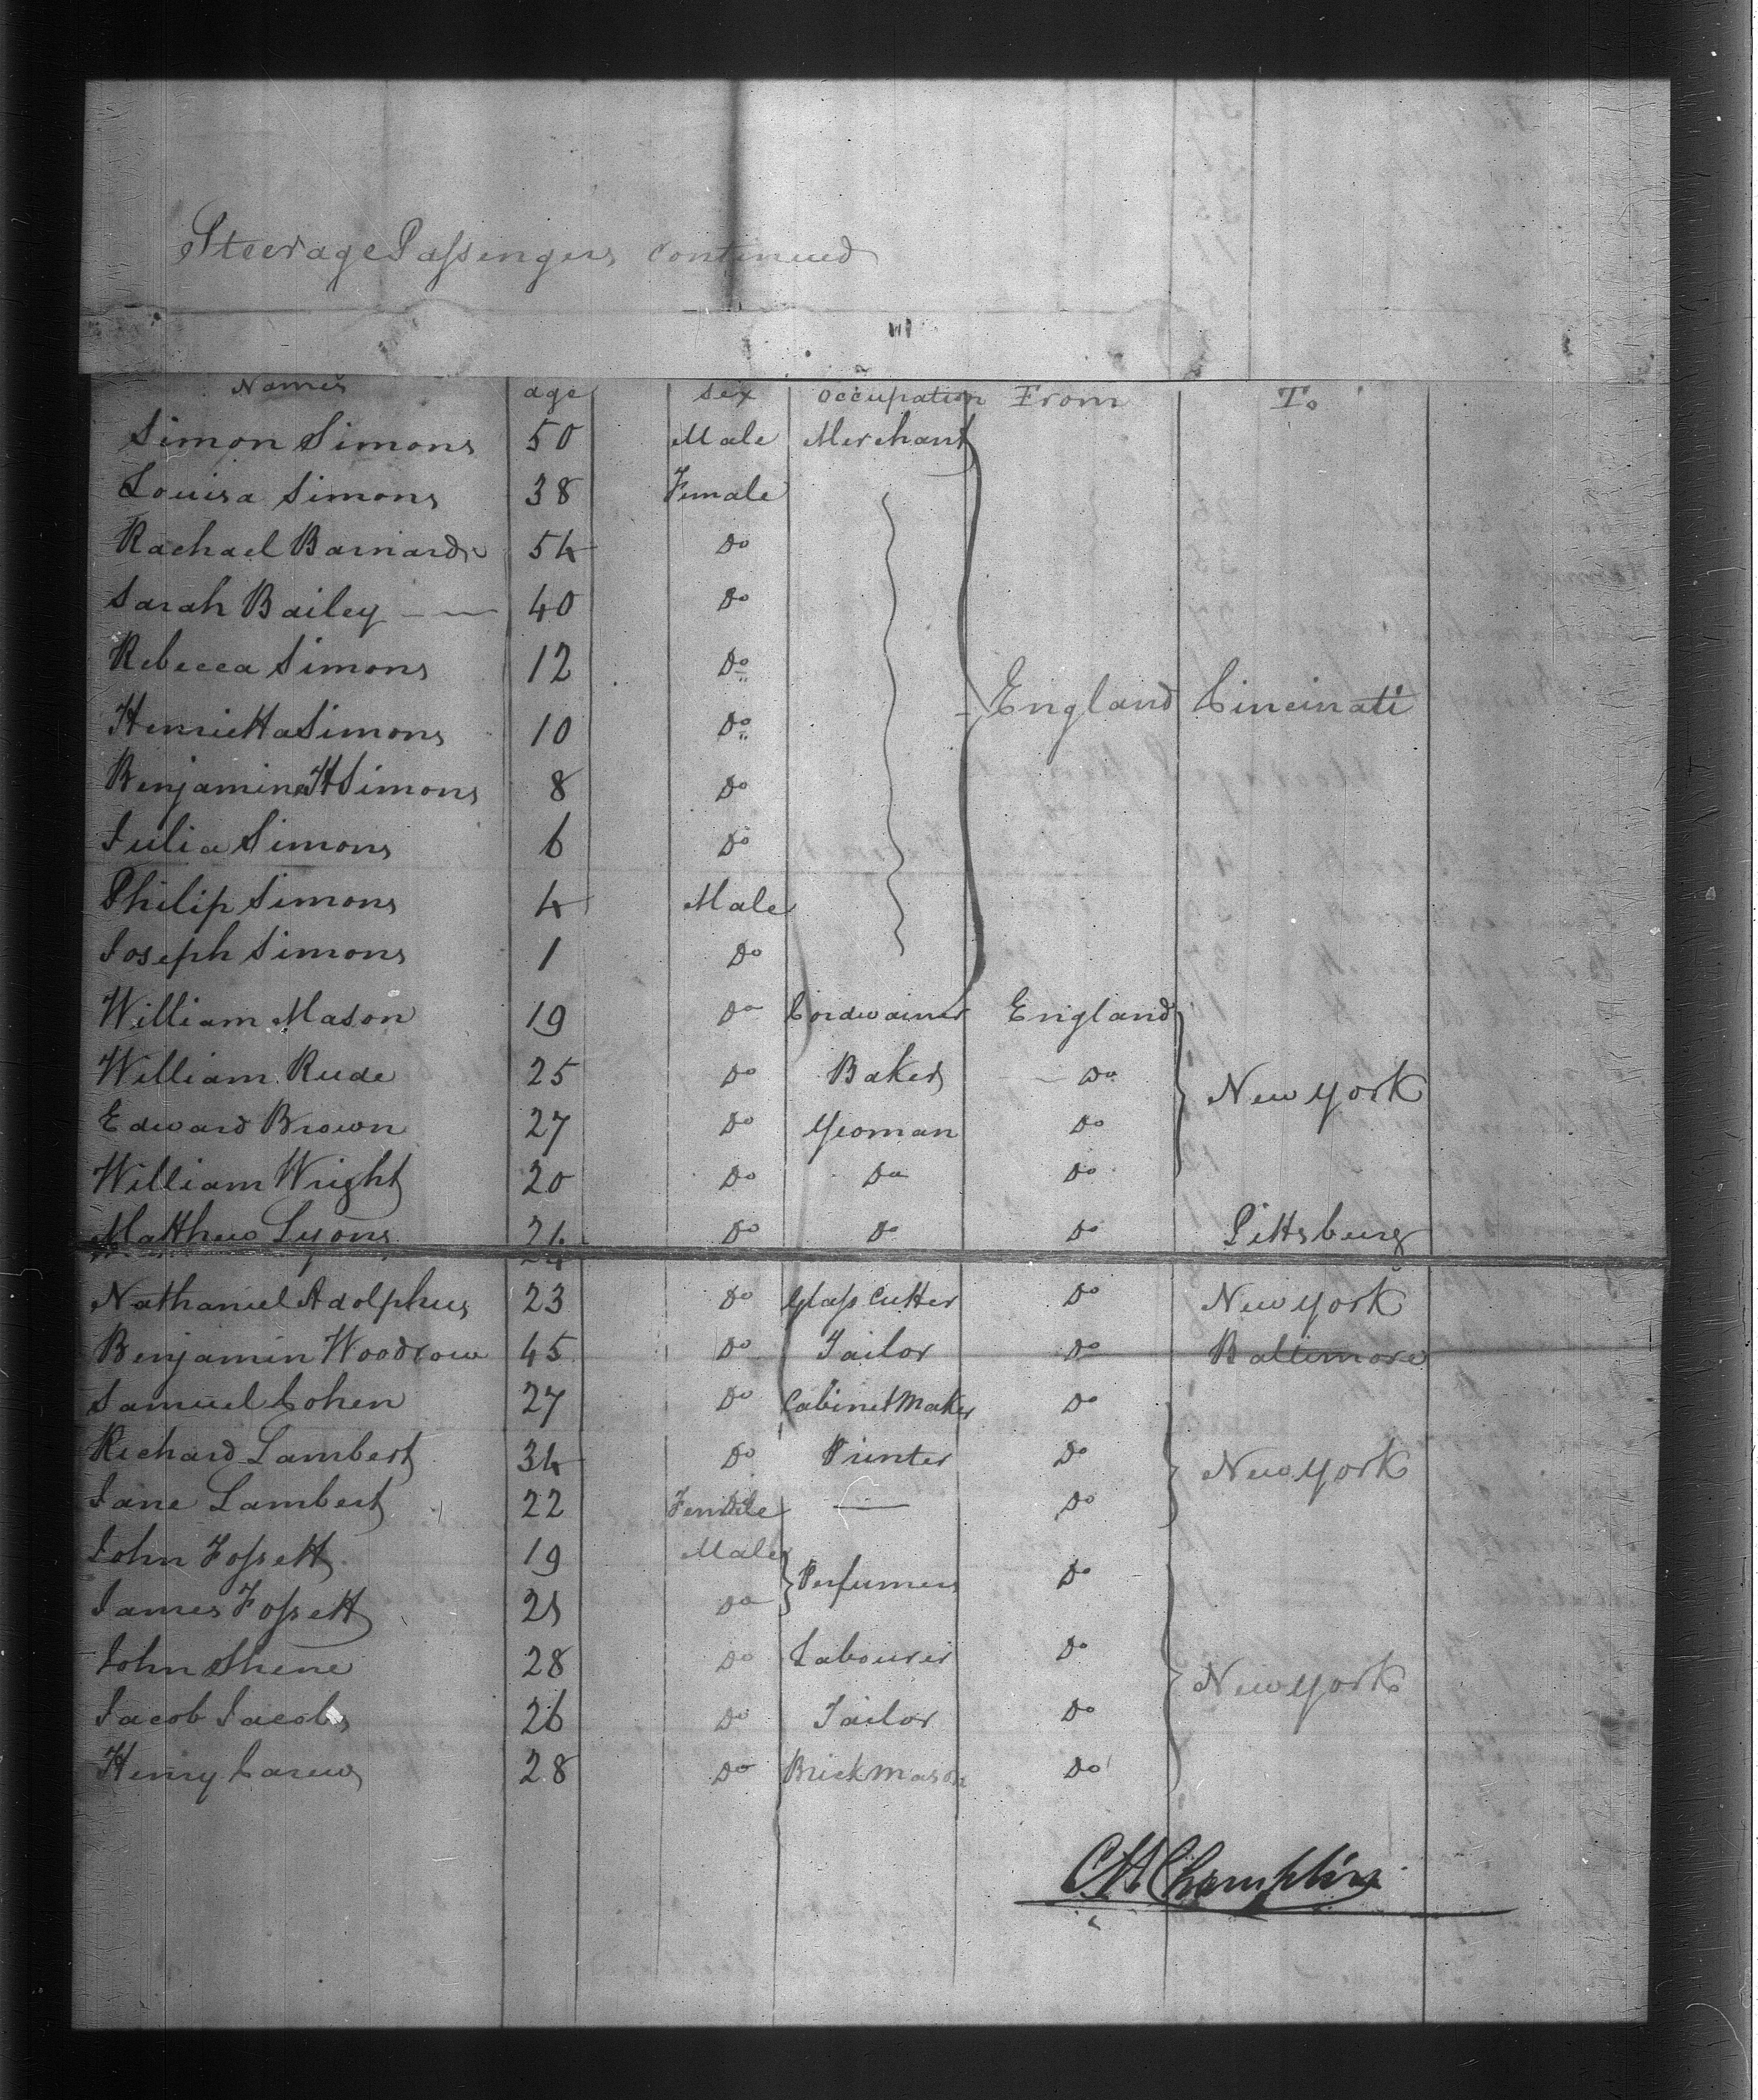 Steerage Passengers continued
Names age sex occupation From To
Simon Simons 50 Male Merchant
Louisa Simons 38 Female
Rachael Barnards 54 Do
Sarah Bailey 40 Do
Rebecca Simons 12 Do
Henrietta Simons 10 Do England Cincinati
Benjamina H Simons 8 Do
Julia Simons 6 Do
Philip Simons 4 Male
Joseph Simons 1 Do
William Mason 19 Do Cordwainer England
William Rude 25 Do Baker Do New York
Edward Brown 27 Do Yeoman Do
William Wright 20 Do Do Do
Matthew Lyons 24 Do Do Do Pittsburg
Nathaniel Adolphus 23 Do Glass Cutter Do New York
Benjamin Woodrow 45 Do Tailor Do Baltimore
Samuel Cohen 27 Do Cabinet Maker Do
Richard Lambert 34 Do Printer Do New York
Jane Lambert 22 Female — Do
John Fossett 19 Male Perfumers Do
James Fossett Do
John Shene 28 Do Labourer Do New York
Jacob Jacobs 26 Do Tailor Do
Henry Carew 28 Do Brick Mason Do
C H Champlin